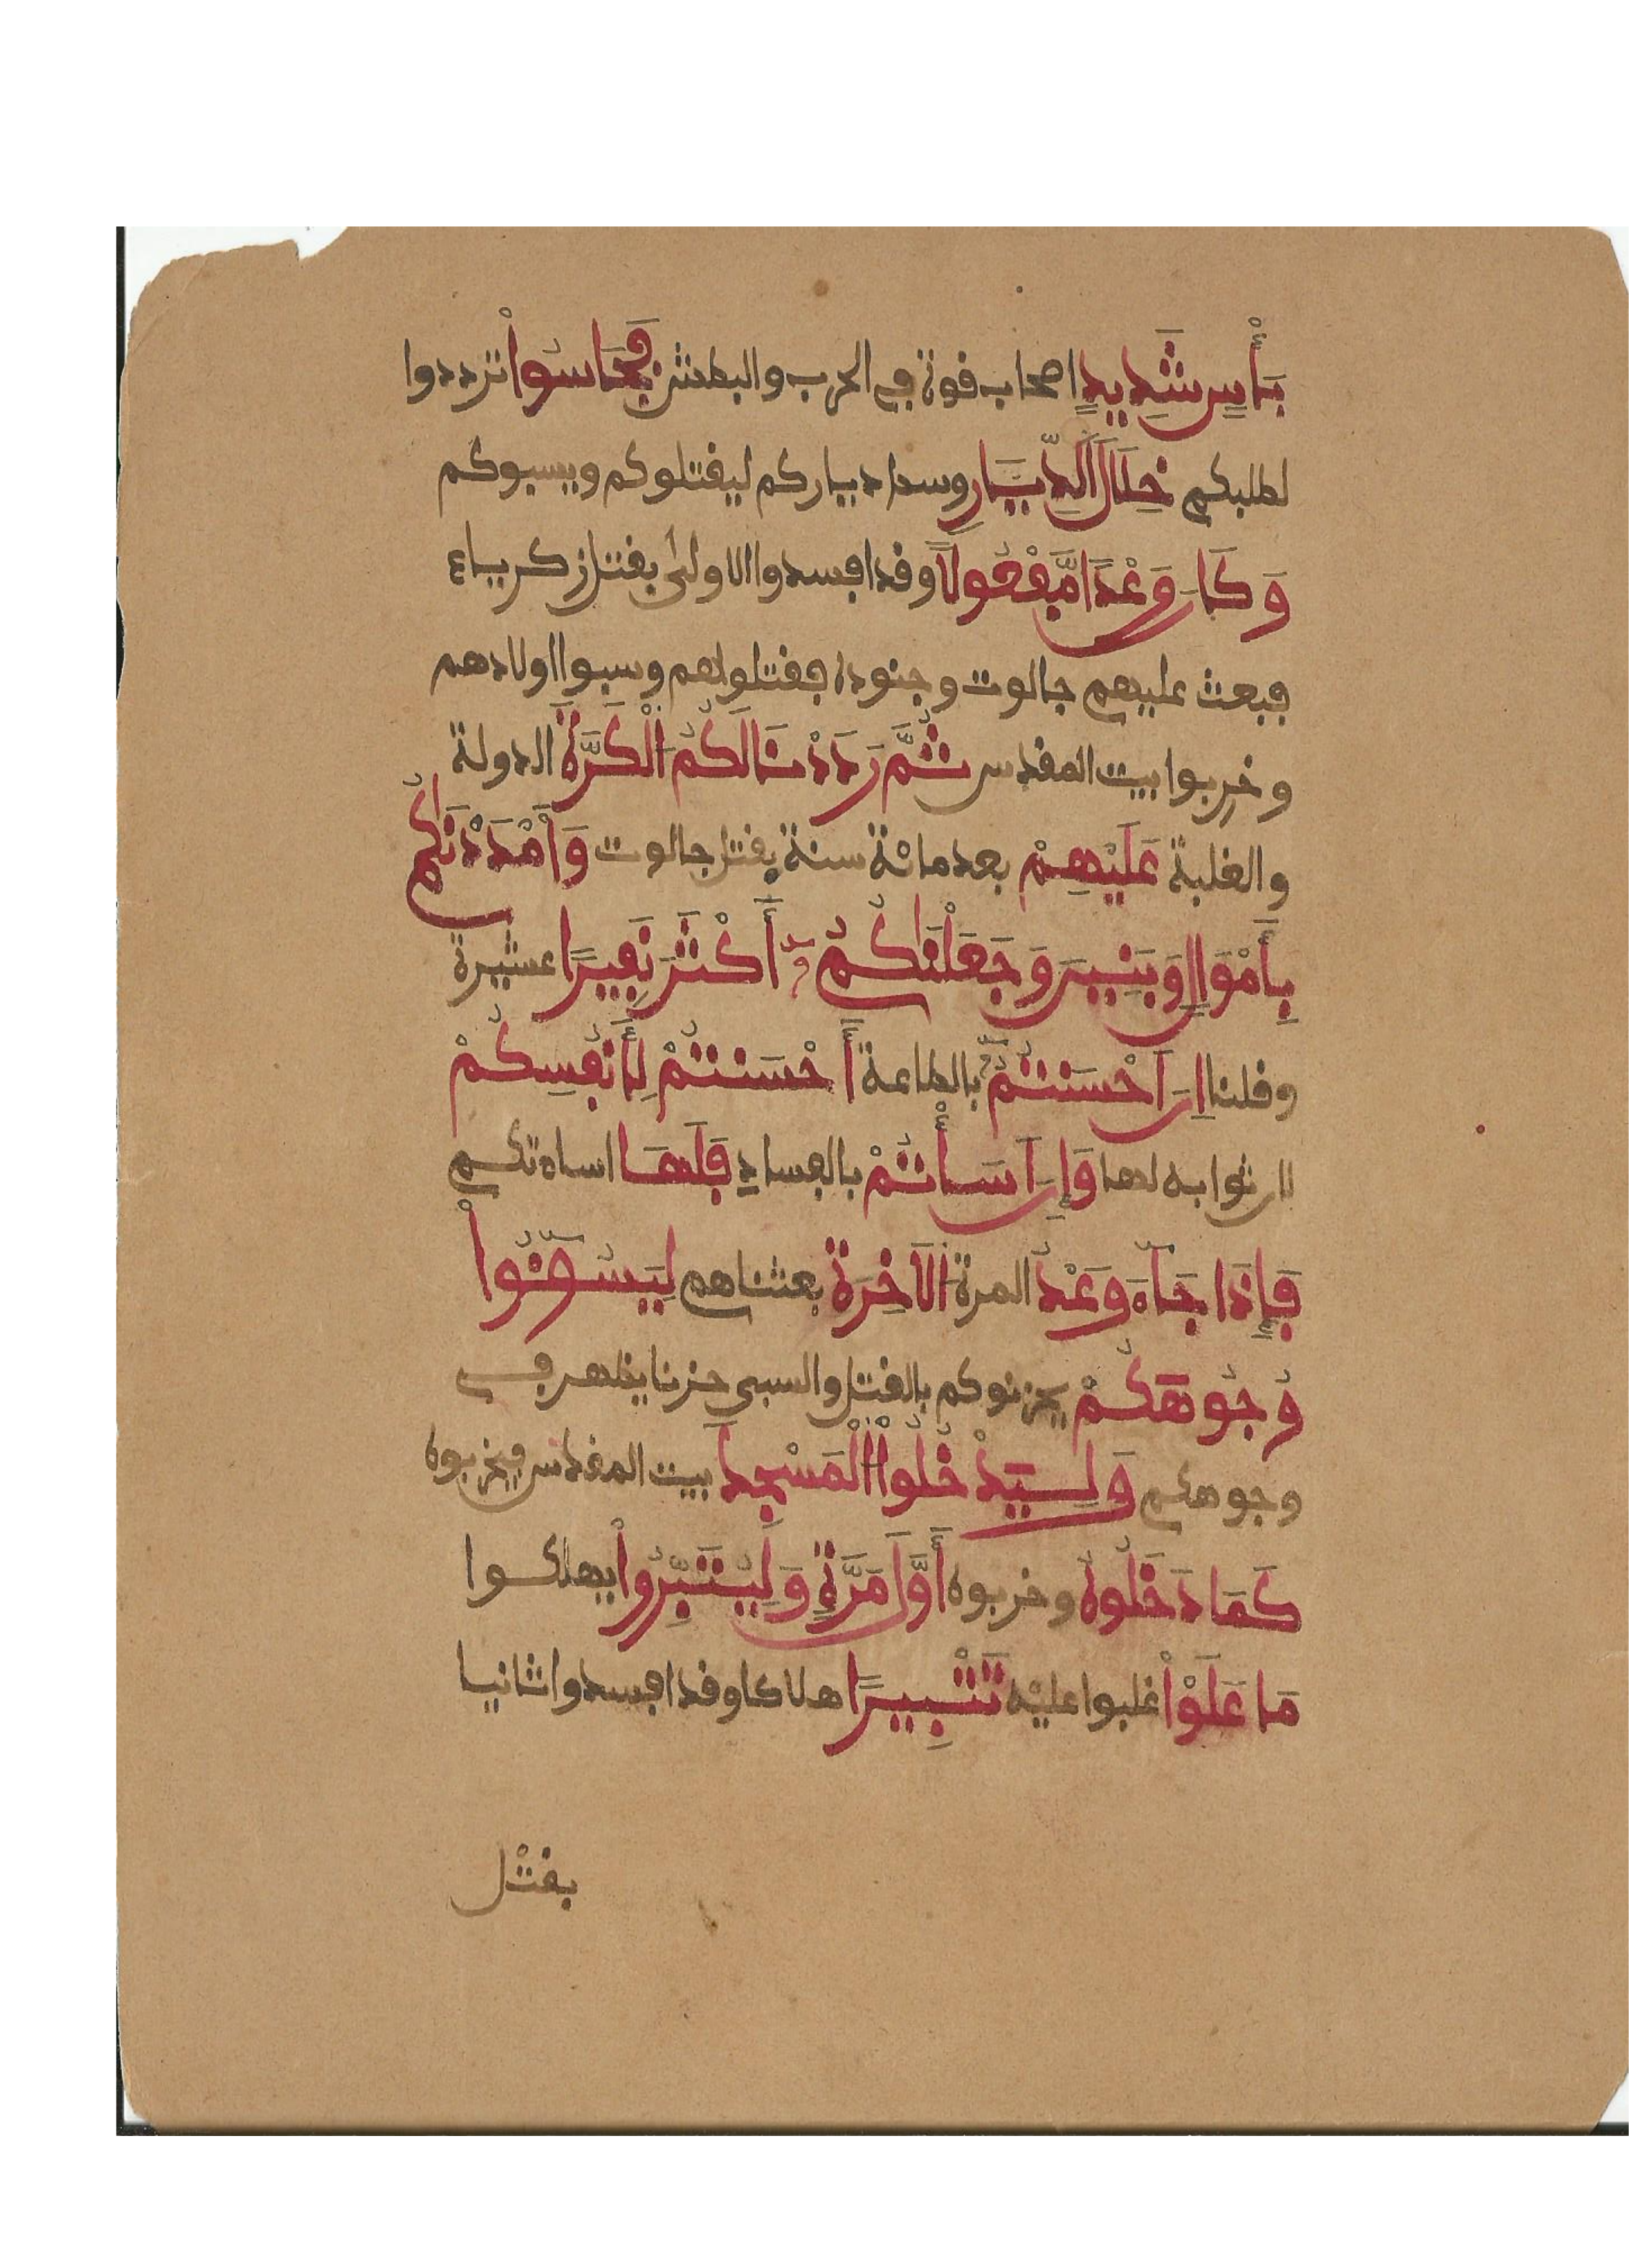 بَأْسٍ شَدِيدٍ اصحاب قوة في الحرب والبطش فَجَاسُواْ ترددوا
لطلبكم خِلَالَ اَلدِّيَارِ وسط دياركم ليقتلوكم ويسبوكم
وَكَانَ وَعْدًا مَّفْعُولًا وقد افسدوا الاولى بقتل زكرياء
فبعث عليهم جالوت وجنوده فقتلوهم وسبوا اولادهم
وخربوا بيت المقدس ثُمَّ رَدَدْنَا لَكُمُ اُلْكَرَّةَ الدولة
والغلبة عَلَيْهِمْ بعد مائة سنة بقتل جالوت وَأَمْدَدْنَٰكُم
بِأَمْوَالٍ وَبَنِينَ وَجَعَلْنَٰكُمُۥ أَكْثَرَ نَفِيرًا عشيرة
وقلنا اِنَ اَحْسَنتُمُۥ بالطاعة أَحْسَنتُمْ لِأَنفُسِكُمْ
لان ثوابه لها وَإِنَ اَسَأْتُمْ بالفساد فَلَهَا اساءتكم
فَإِذَا جَآءَ وَعْدُ المرة اَلَاخِرَةِ بعثناهم لِيَسُـُٔواْ
وُجُوهَكُمْ يحزنوكم بالقتل والسبي حزنا يظهر في
وجوهكم وَلِيَدْخُلُواْ اُلْمَسْجِدَ بيت المقدس فيخربوه
كَمَا دَخَلُوهُ وخربوه أَوَّلَ مَرَّةٍ وَلِيُتَبِّرُواْ يهلكوا
مَا عَلَوْاْ غلبوا عليه تَتْبِيرًا هلاكا وقد افسدوا ثانيا
بقتل